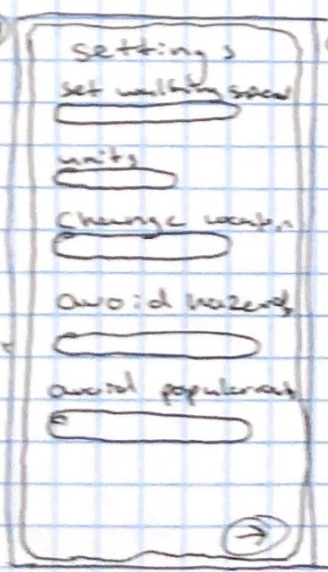 settings
set walking speed
units
change locat.n
avoid hazards
avoid popular
→